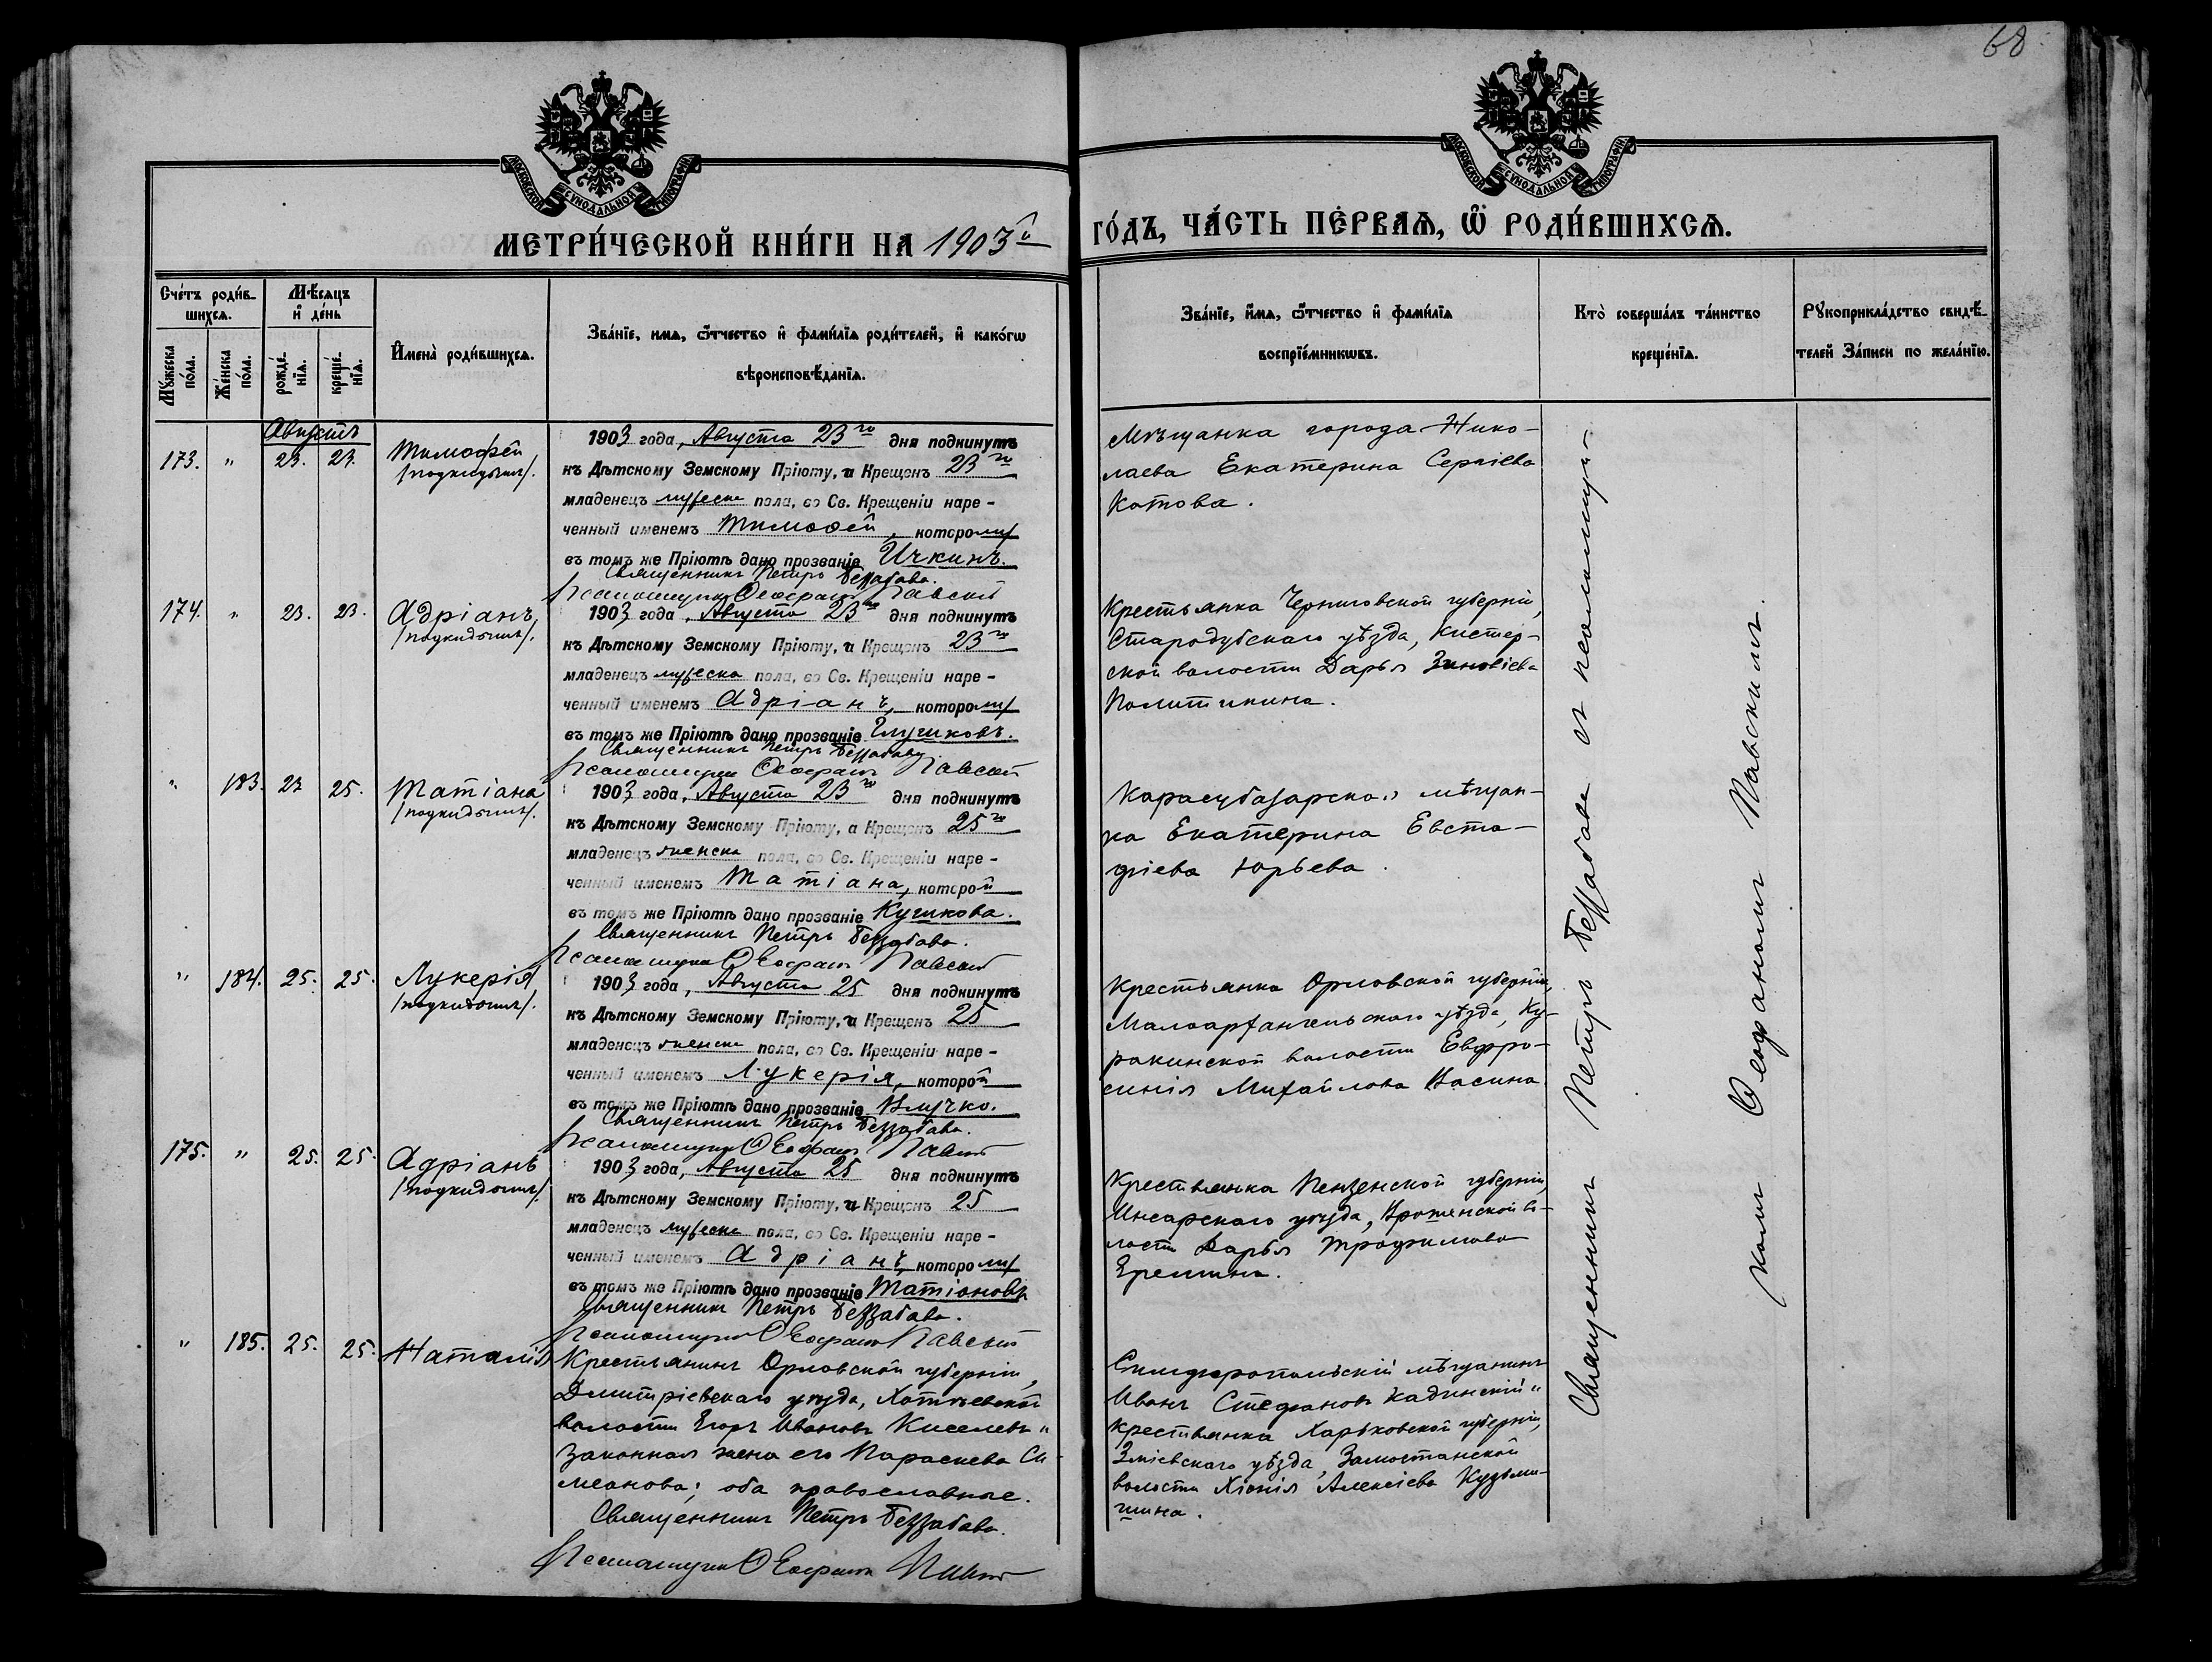 68
МОСКОВСКОЙ СѴНОДАЛЬНОЙ ТИПОГРАФІИ
МЕТРИ́ЧЕСКОЙ КНИ́ГИ НА 1903й
Сче́тъ роди́в-
шихсѧ.
Мѣ́сѧцъ
и҆ де́нь
Мꙋ́жеска
по́ла.
Же́нска
по́ла.
рожде́-
нїѧ.
креще́-
нїѧ.
И҆мена̀ роди́вшихсѧ.
Зва́нїе, имѧ, ѻ҆́тчество и҆ фами́лїѧ роди́телей, и҆ како́гѡ
вѣроисповѣ́данїѧ.
Августъ
173. " 23. 23.
Тимофей
/подкидышъ/.
1903 года, Августа 23го дня подкинутъ
къ Дѣтскому Земскому Пріюту, и Крещенъ 23го
младенецъ мужеска пола, во Св. Крещеніи наре-
ченный именемъ Тимофей, которому
въ томъ же Пріютѣ дано прозваніе Ичкинъ.
Священникъ Петръ Беззабава.
Псаломщикъ Ѳеофанъ Павскій
174. " 23. 23.
Адріанъ,
/подкидышъ/.
1903 года, Августа 23го дня подкинутъ
къ Дѣтскому Земскому Пріюту, и Крещенъ 23го
младенецъ мужеска пола, во Св. Крещеніи наре-
ченный именемъ Адріанъ, которому
въ томъ же Пріютѣ дано прозваніе
Священникъ Петръ Беззабава
Псаломщикъ Ѳеофанъ Павскій
" 183. 23 25.
Татіана
/подкидышъ/.
1903 года, Августа 23го дня подкинутъ
къ Дѣтскому Земскому Пріюту, а Крещенъ 25го
младенецъ женска пола, во Св. Крещеніи наре-
ченный именемъ Татіана, которой
въ томъ же Пріютѣ дано прозваніе Кучикова.
Священникъ Петръ Беззабава.
Псаломщикъ Ѳеофанъ Павскій
" 184. 25. 25.
Лукерія,
/подкидышъ/.
1903 года, Августа 25 дня подкинутъ
къ Дѣтскому Земскому Пріюту, и Крещенъ 25
младенецъ женска пола, во Св. Крещеніи наре-
ченный именемъ Лукерія, которой
въ томъ же Пріютѣ дано прозваніе Клучко.
Священникъ Петръ Беззабава.
Псаломщикъ Ѳеофанъ Павскій
175. " 25. 25.
Адріанъ
/подкидышъ/.
1903 года, Августа 25 дня подкинутъ
къ Дѣтскому Земскому Пріюту, и Крещенъ 25
младенецъ мужеска пола, во Св. Крещеніи наре-
ченный именемъ Адріанъ, которому
въ томъ же Пріютѣ дано прозваніе Татіоновъ
Священникъ Петръ Беззабава.
Псаломщикъ Ѳеофанъ Павскій
" 185. 25. 25.
Наталія
Крестьянинъ Орловской губерніи,
Дмитріевскаго уѣзда, Хотѣевской
волости Егоръ Ивановъ Киселевъ и
законная жена его Параскева Си-
меонова; оба православные.
Священникъ Петръ Беззабава.
Псаломщикъ Ѳеофанъ Павскій
МОСКОВСКОЙ СѴНОДАЛЬНОЙ ТИПОГРАФІИ
ГО́ДЪ, ЧА́СТЬ ПЕ́РВАѦ, Ѡ҆ РОДИ́ВШИХСѦ.
Зва́нїе, и҆́мѧ, ѻ҆́тчество и҆ фами́лїѧ
воспрїе́мникѡвъ.
Кто̀ соверша́лъ та́инство
креще́нїѧ.
Рꙋкоприкла́дство свидѣ́-
телей За́писи по жела́нїю.
Мѣщанка города Нико-
лаева Екатерина Сергіева
Котова.
Крестьянка Черниговской губерніи,
Стародубскаго уѣзда, Кистер-
ской волости Дарья Зиновіева
Политикина.
Карасубазарская мѣщан-
ка Екатерина Евста-
фіева Юрьева.
Крестьянка Орловской губерніи,
Малоархангельскаго уѣзда, Ку-
ракинской волости Евфро-
синія Михайлова Васина
Крестьянка Пензенской губерніи,
Инсарскаго уѣзда, во-
лости Дарья Трофимова
Еремина.
Симферопольскій мѣщанинъ
Иванъ Стефановъ Кадинскій и
крестьянка Харьковской губерніи,
Зміевскаго уѣзда, Замостанской
волости Хіонія Алексіева Кузьми-
шина.
Священникъ Петръ Беззабава съ псаломщи-
комъ Ѳеофаномъ Павскимъ.